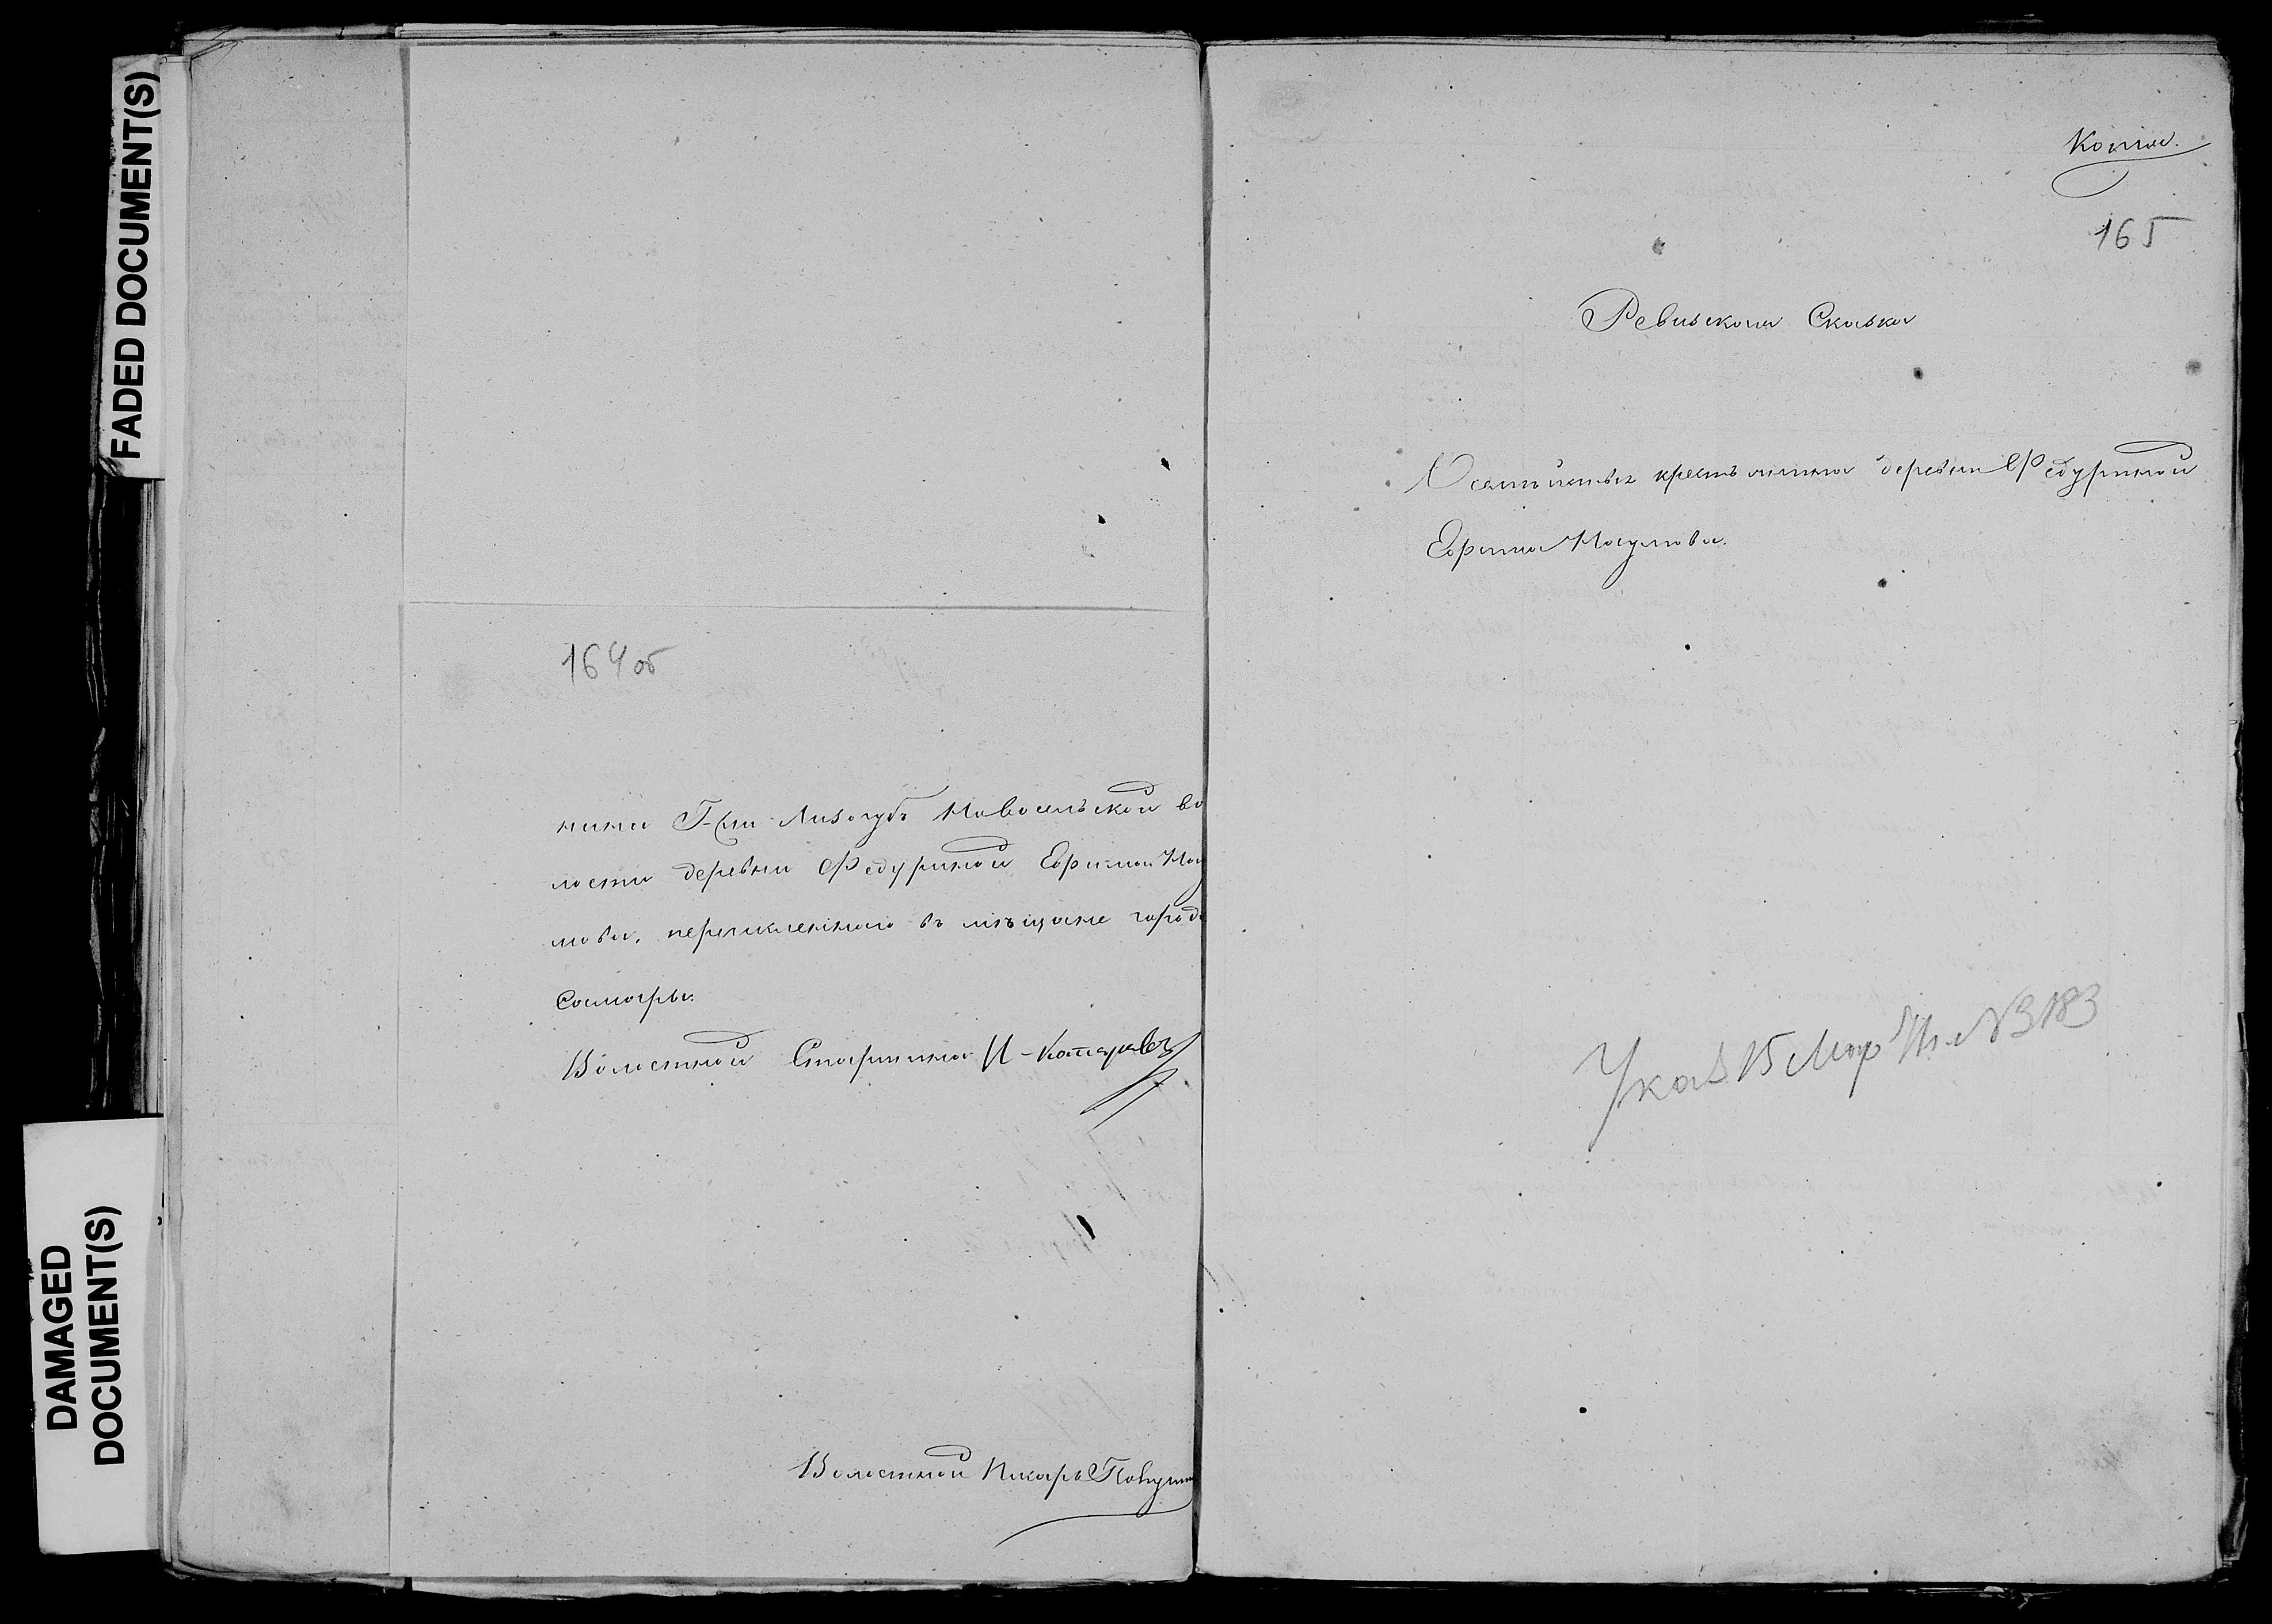 FADED DOCUMENT(S)
DAMAGED
DOCUMENT(S)
164 об
нина Г-жи Лизогубъ Новосельской во
лости деревни Федуриной Ефима Нау
мова, перечисленнаго въ мѣщане города
Самары.
Волостной Старшина И-Котаревъ
Волостной Писарь
Копія.
165
Ревизская Сказка
О семѣйствѣ крестьянина деревни Федуриной
Ефима Наумова.
Указ 15 Мар № 3183